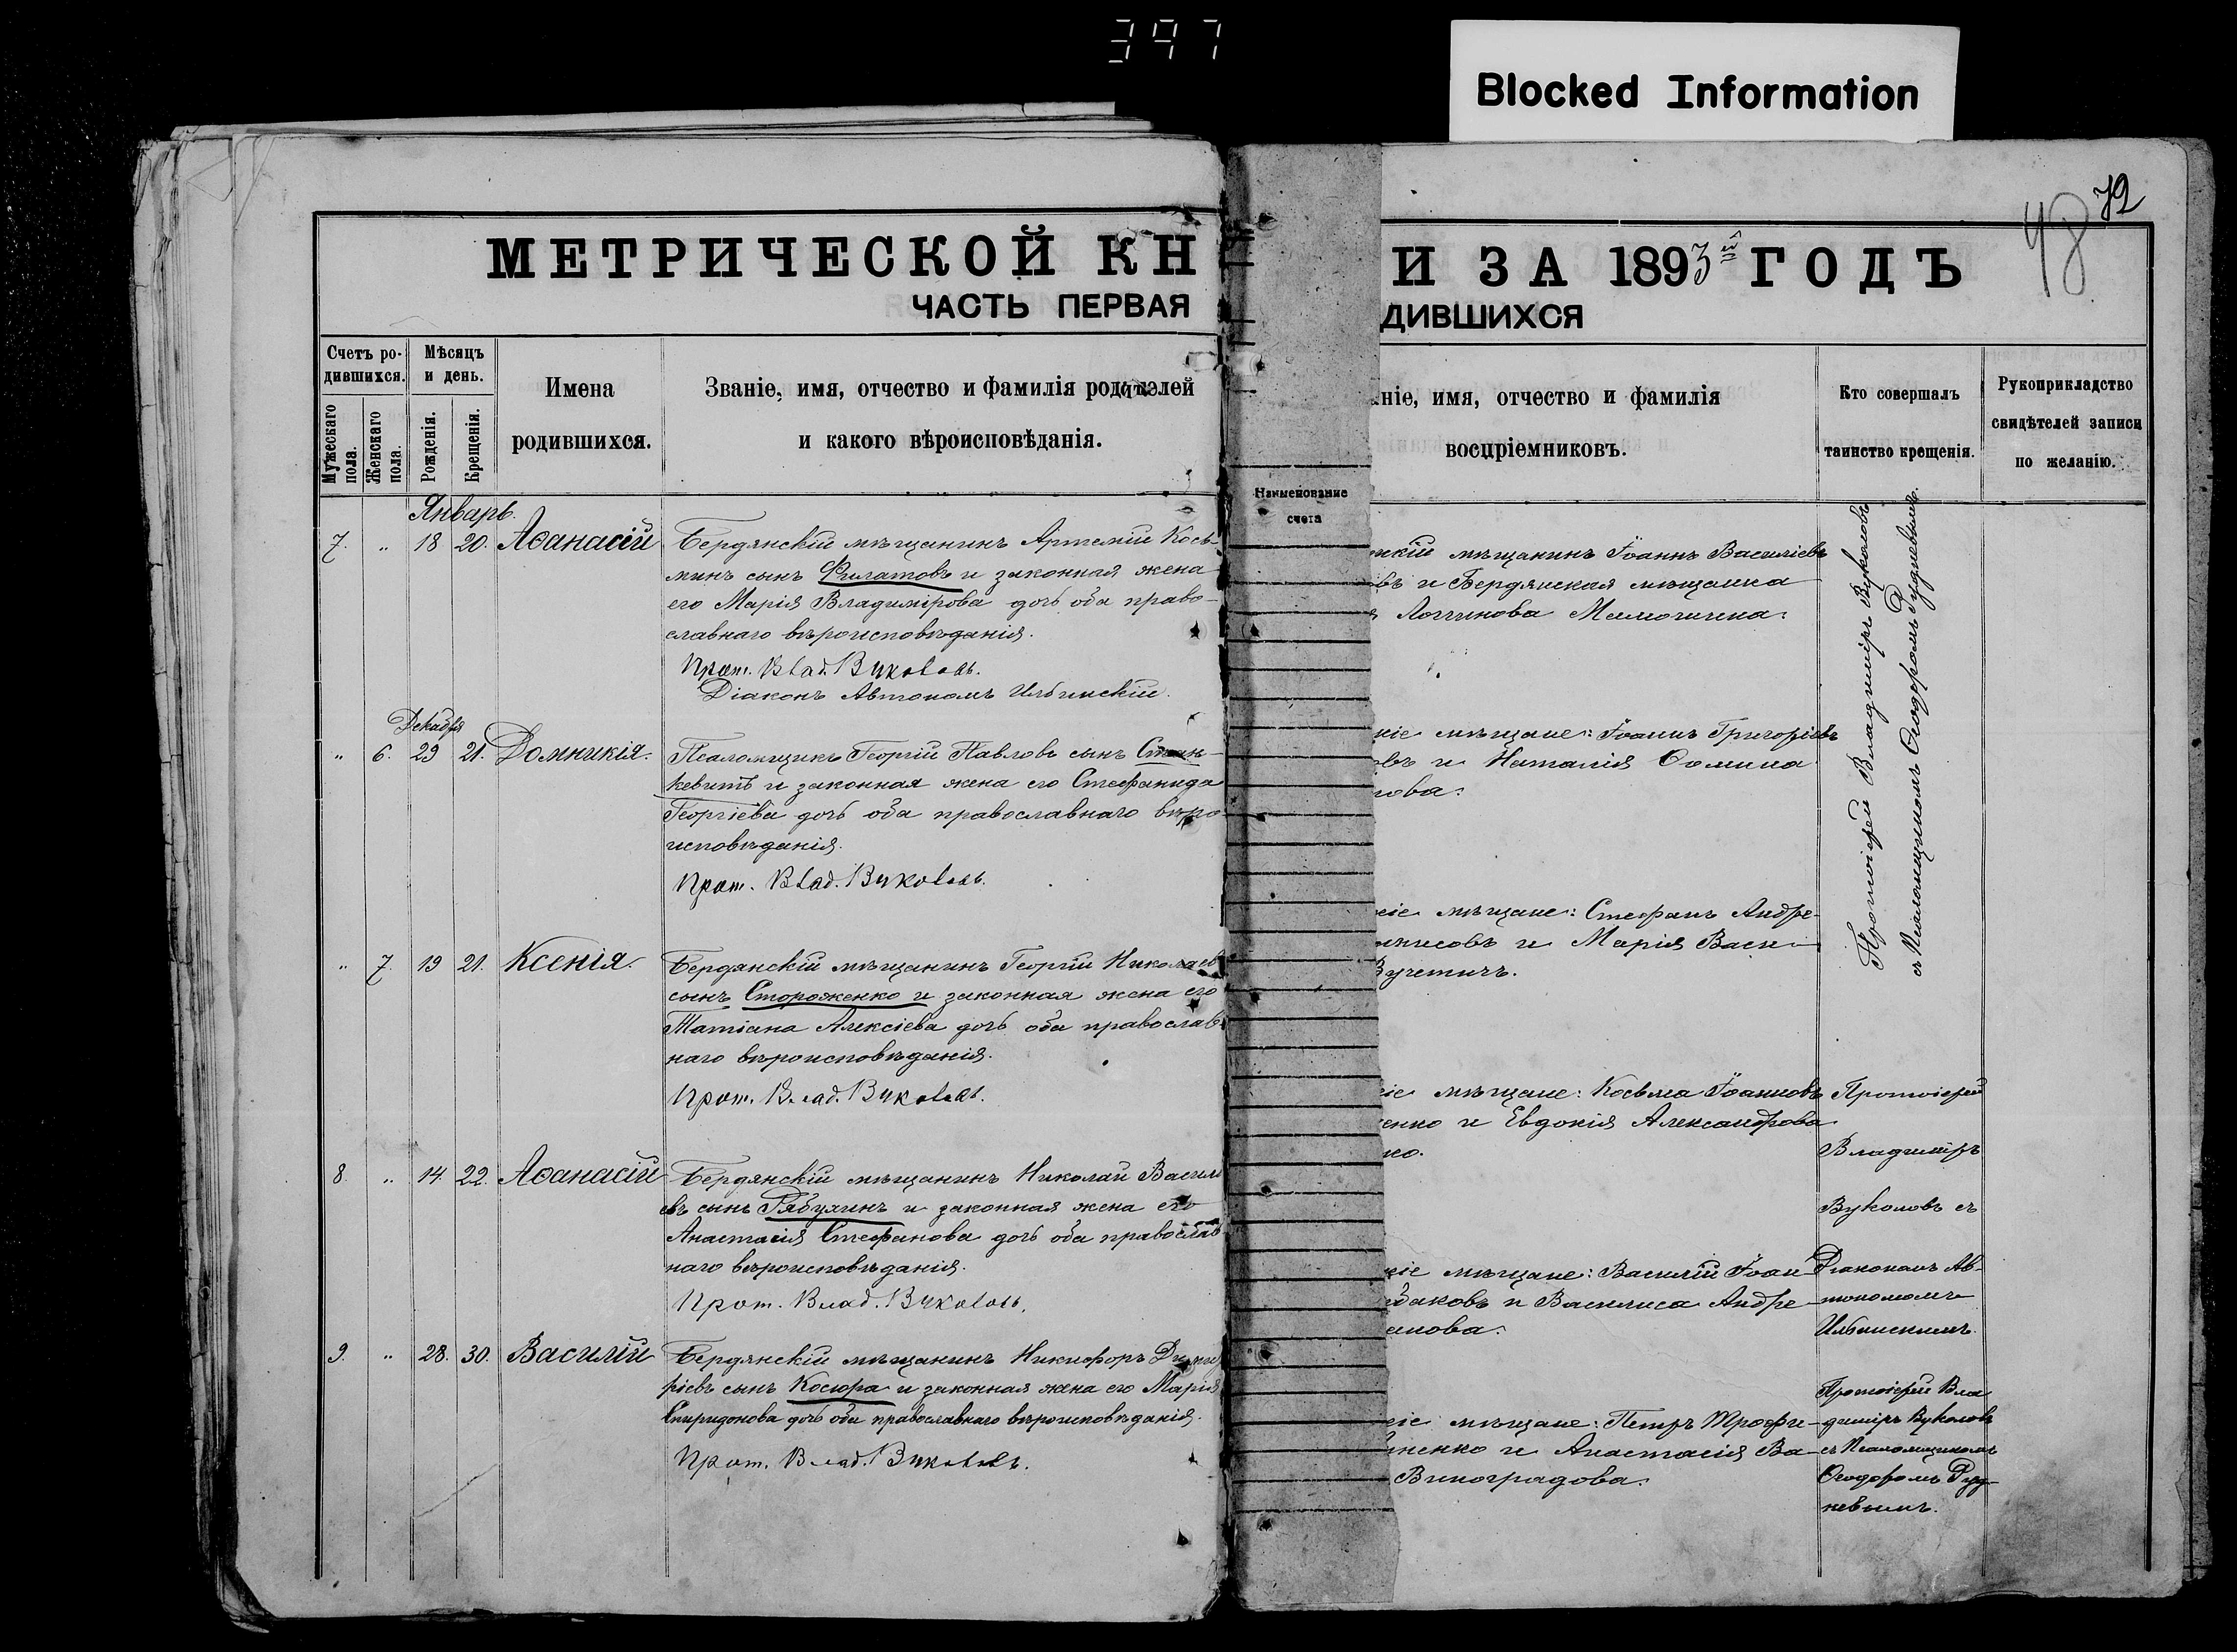 397
Blocked Information
72
48
МЕТРИЧЕСКОЙ КН
И ЗА 1893й ГОДЪ
ЧАСТЬ ПЕРВАЯ
ДИВШИХСЯ
Счетъ ро-
дившихся.
Мужескаго пола.
Женскаго пола.
Мѣсяцъ
и день.
Рожденія.
Крещенія.
Имена
родившихся.
Званіе, имя, отчество и фамилія родителей
и какого вѣроисповѣданія.
Наименование
счета
ніе, имя, отчество и фамилія
воспріемниковъ.
Кто совершалъ
таинство крещенія.
Рукоприкладство
свидѣтелей записи
по желанію.
Январь.
7. " 18 20. Аѳанасій
Бердянскій мѣщанинъ Артемій Кось-
минъ сынъ Филатовъ и законная жена
его Марія Владимірова дочь оба право-
славнаго вѣроисповѣданія.
Прот. Влад. Вуколовъ.
Діаконъ Автономъ Ильинскій.
скій мѣщанинъ Іоаннъ Василіевъ
въ и Бердянская мѣщанка
Логгинова
Протоіерей Владиміръ Вуколовъ
съ Псаломщикомъ Ѳеодоромъ Рудневымъ.
Декабря
" 6. 29 21. Домникія.
Псаломщикъ Георгій Павловъ сынъ Стан-
кевичъ и законная жена его Стефанида
Георгіева дочь оба православнаго вѣро-
исповѣданія.
Прот. Влад. Вуколовъ.
кіе мѣщане: Іоаннъ Григоріевъ
овъ и Наталія Ѳомина
ова.
" 7. 19 21. Ксенія.
Бердянскій мѣщанинъ Георгій Николаевъ
сынъ Стороженко и законная жена его
Татіана Алексіева дочь оба православ-
наго вѣроисповѣданія.
Прот. Влад. Вуколовъ.
кіе мѣщане: Стефанъ Андре-
нисовъ и Марія Васи-
Вучетичъ.
8. " 14. 22. Аѳанасій
Бердянскій мѣщанинъ Николай Василі-
евъ сынъ Рябухинъ и законная жена его
Анастасія Стефанова дочь оба православ-
наго вѣроисповѣданія.
Прот. Влад. Вуколовъ.
кіе мѣщане: Косьма Іоанновъ
енко и Евдокія Александрова
ко.
Протоіерей
Владиміръ
Вуколовъ съ
Діакономъ Ав-
тономомъ
Ильинскимъ.
9. " 28. 30. Василій
Бердянскій мѣщанинъ Никифоръ Димит-
ріевъ сынъ Косюра и законная жена его Марія
Спиридонова дочь оба православнаго вѣроисповѣданія.
Прот. Влад. Вуколовъ.
кіе мѣщане: Василій Іоан-
баковъ и Василиса Андре-
анова.
кіе мѣщане: Петръ Трофи-
ненко и Анастасія Ва-
Виноградова.
Протоіерей Вла-
диміръ Вуколовъ
съ Псаломщикомъ
Ѳеодоромъ Руд-
невымъ.